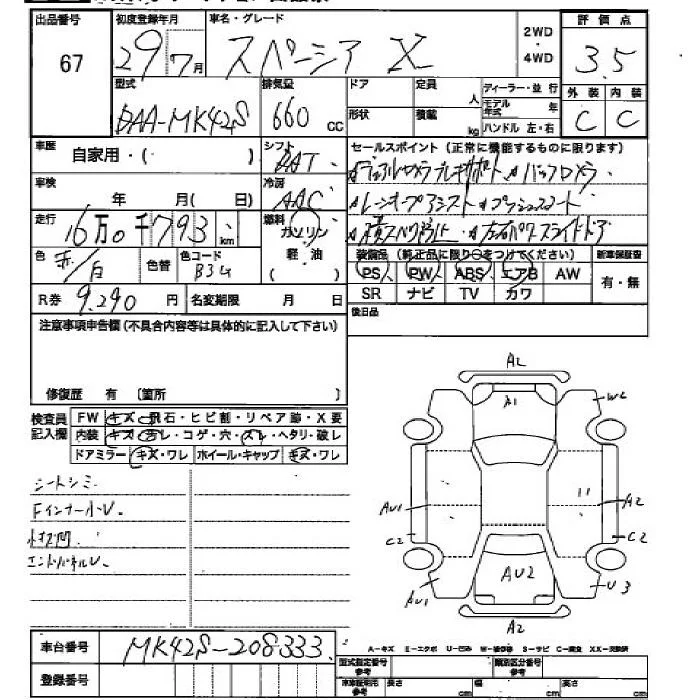 出品番号 初度登録年月 車名・グレード 2WD・4WD 評価点
67 29年7月 スペーシア X 3.5
型式 排気量 ドア 定員 人 ディーラー・並行 外装 内装
DAA-MK42S 660cc 形状 積載 kg モデル年式 年 ハンドル 左・右 C C
車歴 自家用・( ) シフト DAT セールスポイント(正常に機能するものに限ります)
デュアルカメラブレーキサポート バックカメラ
車検 年 月( 日) 冷房 AAC
走行 16万0千793km 燃料 ガソリン 軽・油 ( )
プッシュスタート
左右パワースライドドア
色 赤/白 色替 色コード B3G
装備品(純正品に限り○をつけてください) 新車保証書
PS PW ABS エアB AW 有・無
SR ナビ TV カワ
R券 9,290円 名変期限 月 日 後日品
注意事項申告欄(不具合内容等は具体的に記入して下さい)
修復歴 有 〔箇所 〕
検査員記入欄 FW キズ・飛石・ヒビ割・リペア跡・X要
内装 キズ・汚レ・コゲ・穴・スレ・ヘタリ・破レ
ドアミラー キズ・ワレ ホイール・キャップ キズ・ワレ
シートシミ
Fインナー小U.
エンドパネルU.
A2
A1 W2
AU1 A2
C2 C2
AU2
AU1 U3
A2
車台番号 MK42S-208333
A-キズ E-エクボ U-凹み W-補修跡 S-サビ C-腐食 XX-交換済
登録番号 型式指定番号 参考 類別区分番号 参考
車庫証明用 参考 長さ cm 幅 cm 高さ cm